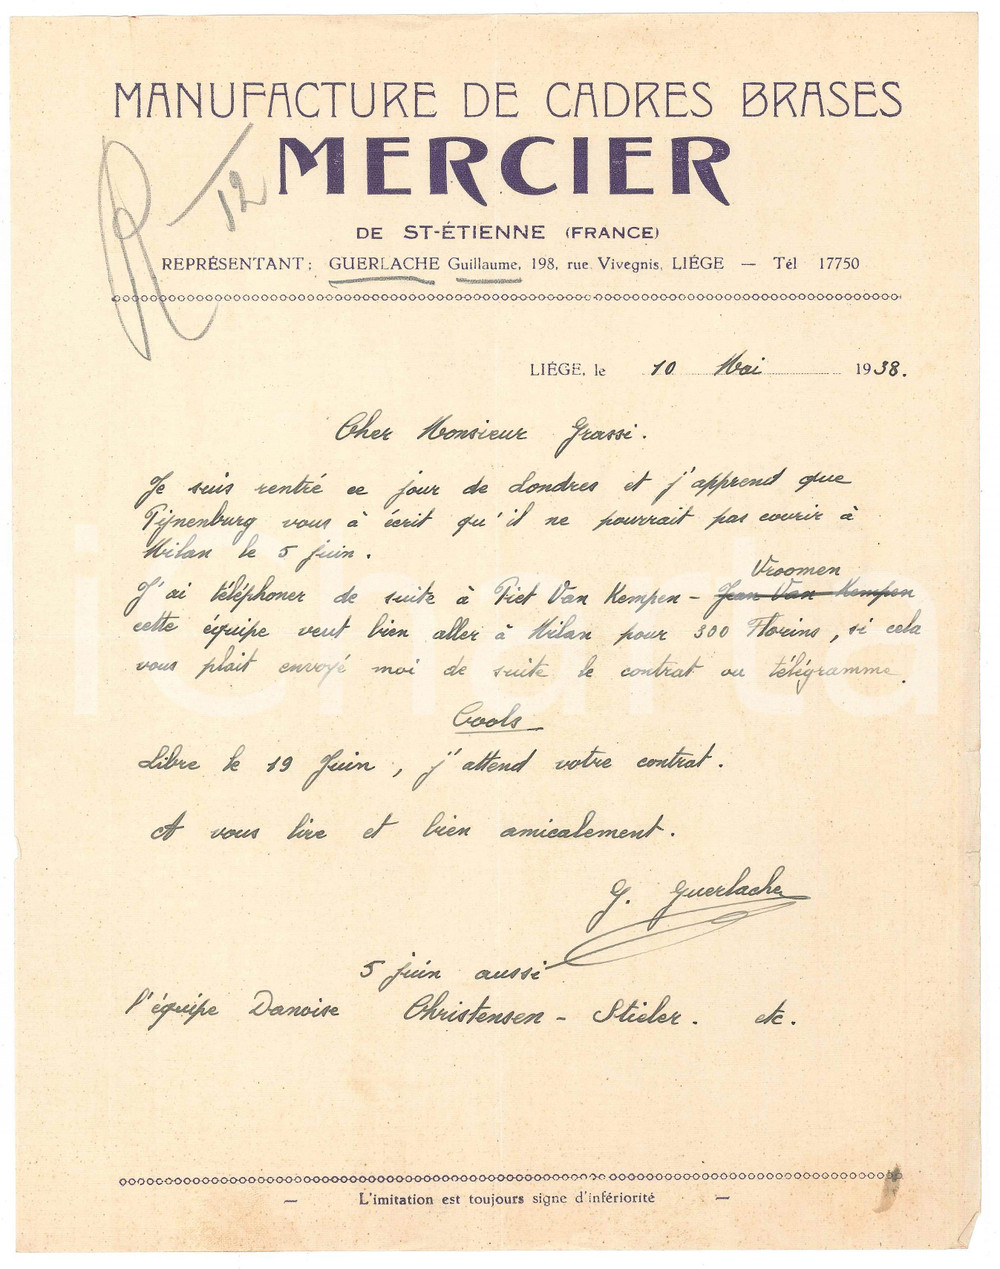 MANUFACTURE DE CADRES BRASES
MERCIER
R 12
DE ST-ÉTIENNE (FRANCE)
REPRÉSENTANT; GUERLACHE Guillaume, 198, rue Vivegnis, LIÉGE — Tél 17750
LIÉGE, le 10 Mai 1938.
Cher Monsieur Grassi.
Je suis rentré ce jour de Londres et j'apprend que
Pijnenburg vous à écrit qu'il ne pourrait pas courir à
Milan le 5 juin.
Vroomen
J'ai téléphoner de suite à Piet Van Kempen - Jean Van Kempen
cette équipe veut bien aller à Milan pour 300 Florins, si cela
vous plait envoyé moi de suite le contrat ou télégramme.
Cools
Libre le 19 Juin, j'attend votre contrat.
A vous lire et bien amicalement.
G. Guerlache
5 juin aussi
l'équipe Danoise Christensen - Stieler. etc.
L'imitation est toujours signe d'infériorité
iCharta